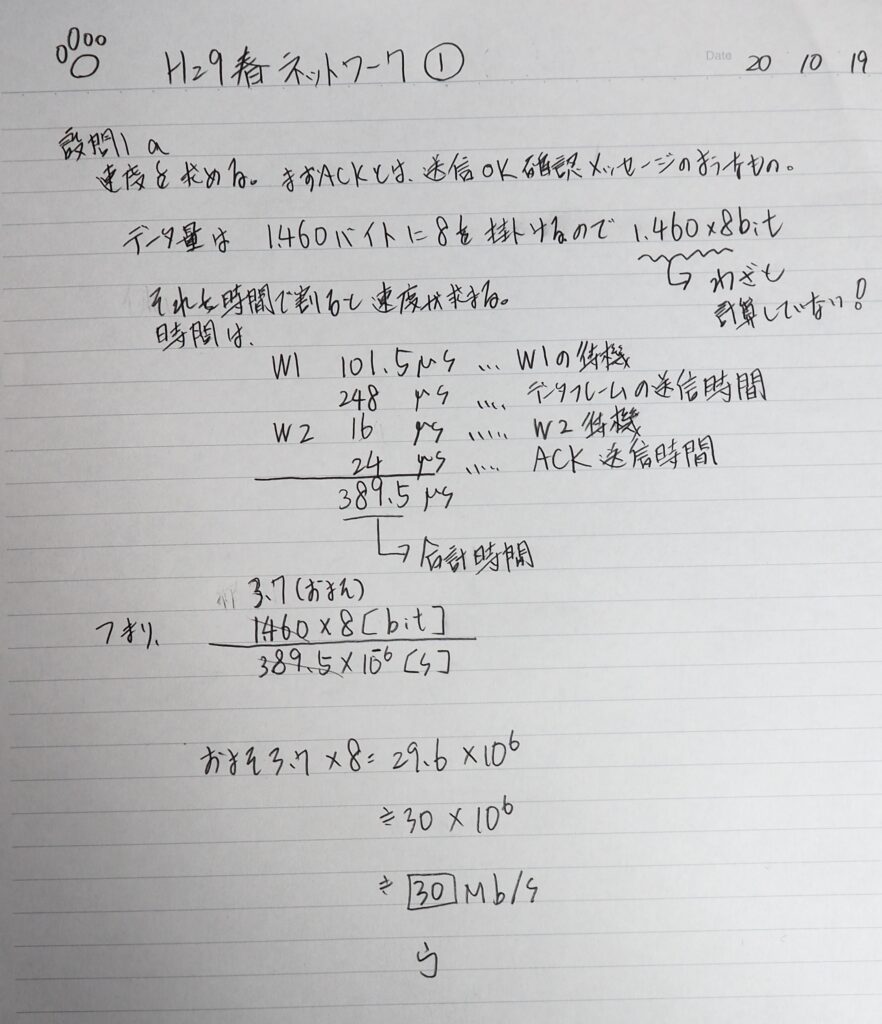 H29春ネットワーク①
Date 20 10 19
設問1 a
速度を求める。まずACKとは、送信OK確認メッセージのようなもの。
データ量は 1460バイトに8を掛けるので 1.460×8bit
わざと
計算していない!
それを時間で割ると速度が求まる。
時間は、
W1 101.5μs … W1の待機
248 μs …. データフレームの送信時間
W2 16 μs ..... W2待機
24 μs ..... ACK送信時間
389.5 μs
合計時間
3.7(およそ)
つまり、 1460×8[bit]
389.5×10⁻⁶[s]
およそ3.7×8= 29.6×10⁶
≒30×10⁶
≒30Mb/s
う